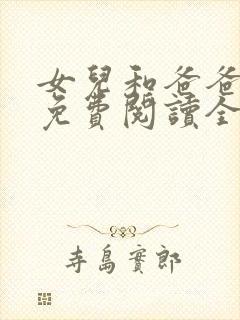 女兒和爸爸
免費閱讀全
寺島實郎